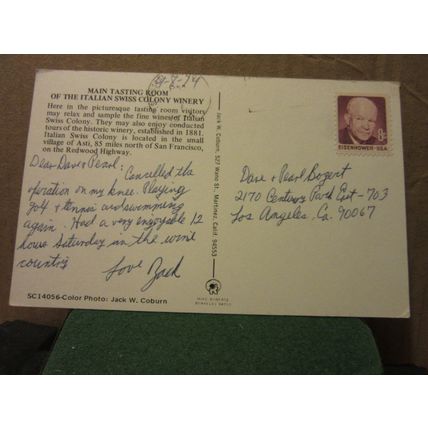 MAIN TASTING ROOM
OF THE ITALIAN SWISS COLONY WINERY
Here in the picturesque tasting room visitors
may relax and sample the fine wines of Italian
Swiss Colony. They may also enjoy conducted
tours of the historic winery, established in 1881.
Italian Swiss Colony is located in the small
village of Asti, 85 miles north of San Francisco,
on the Redwood Highway.
Dear Dave & Pearl:
Cancelled the
operation on my knee. Playing
golf & tennis and swimming
again. Had a very enjoyable 12
hours Saturday in the wine
country
Love Jack
SC14056-Color Photo: Jack W. Coburn
Jack W. Coburn, 527 Wano St., Martinez, Calif. 94553
EISENHOWER·USA
8c
Dave & Pearl Bogert
2170 Century Park East - 703
Los Angeles, Ca. 90067
MIKE ROBERTS
BERKELEY 94710